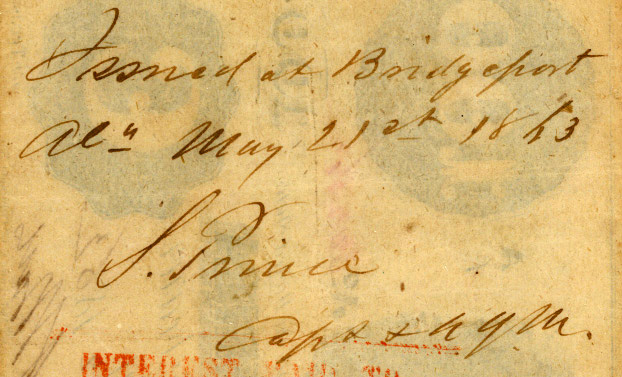 Issued at Bridgeport
Ala May 21st 1863
S. Prince
Capt & AQM.
INTEREST PAID TO